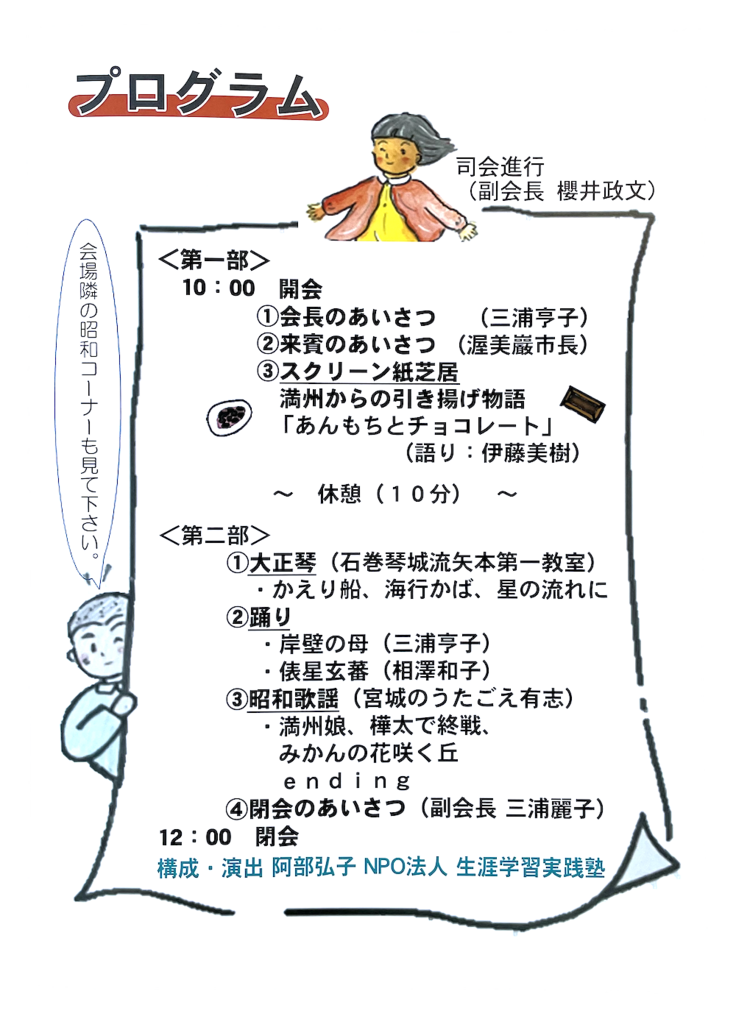 プログラム
司会進行
（副会長 櫻井政文）
会場隣の昭和コーナーも見て下さい。
＜第一部＞
10：00 開会
①会長のあいさつ （三浦亨子）
②来賓のあいさつ （渥美巖市長）
③スクリーン紙芝居
満州からの引き揚げ物語
「あんもちとチョコレート」
（語り：伊藤美樹）
～ 休憩（１０分） ～
＜第二部＞
①大正琴（石巻琴城流矢本第一教室）
・かえり船、海行かば、星の流れに
②踊り
・岸壁の母（三浦亨子）
・俵星玄蕃（相澤和子）
③昭和歌謡（宮城のうたごえ有志）
・満州娘、樺太で終戦、
みかんの花咲く丘
ｅｎｄｉｎｇ
④閉会のあいさつ（副会長 三浦麗子）
12：00 閉会
構成・演出 阿部弘子 NPO法人 生涯学習実践塾